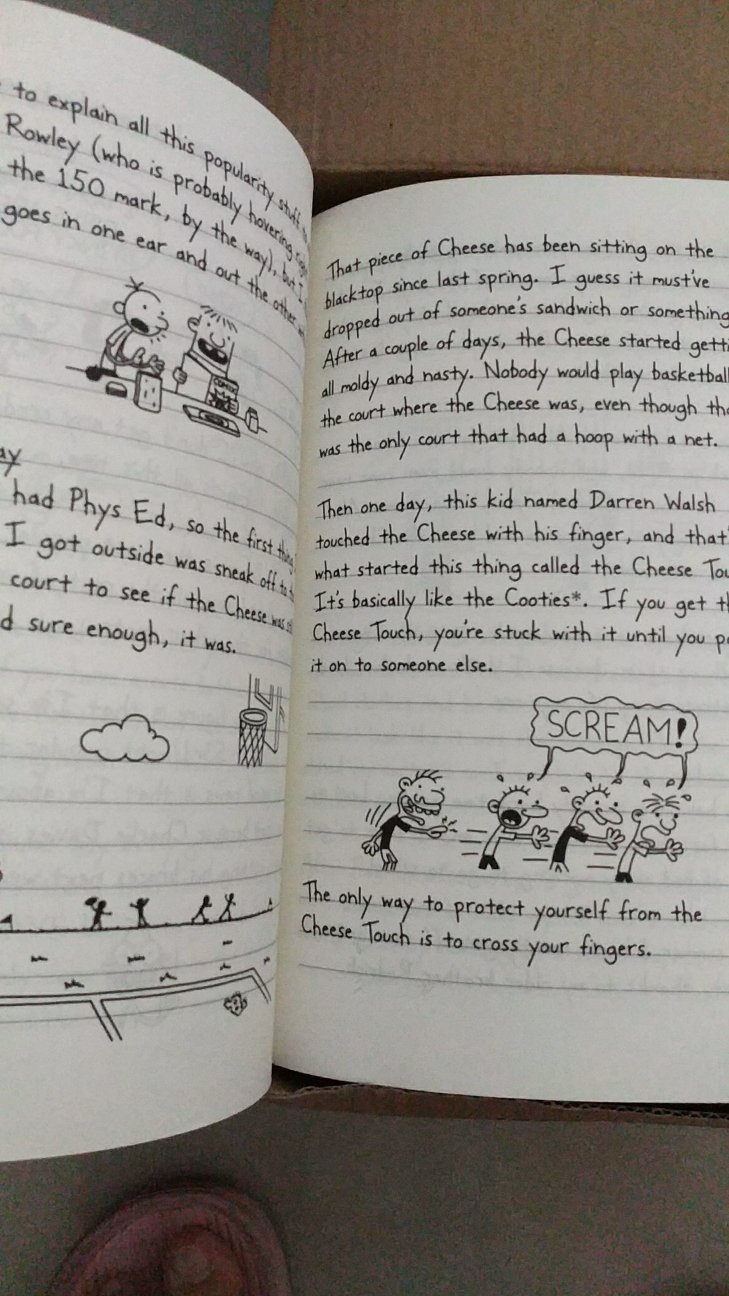 to explain all this popularity stuff
Rowley (who is probably hovering right
the 150 mark, by the way), but I
goes in one ear and out the other
ay
had Phys Ed, so the first thing
I got outside was sneak off to
court to see if the Cheese was
d sure enough, it was.
That piece of Cheese has been sitting on the
blacktop since last spring. I guess it must've
dropped out of someone's sandwich or something
After a couple of days, the Cheese started getti
all moldy and nasty. Nobody would play basketball
the court where the Cheese was, even though th
was the only court that had a hoop with a net.
Then one day, this kid named Darren Walsh
touched the Cheese with his finger, and that'
what started this thing called the Cheese Tou
It's basically like the Cooties*. If you get th
Cheese Touch, you're stuck with it until you p
it on to someone else.
SCREAM!
The only way to protect yourself from the
Cheese Touch is to cross your fingers.